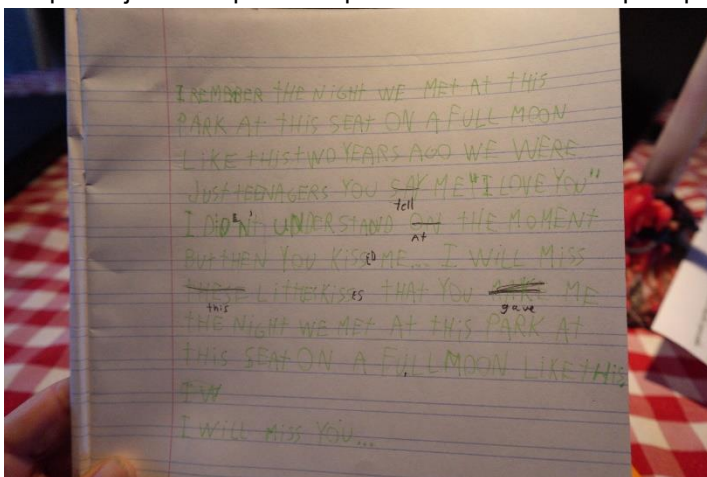 I REMEMBER THE NIGHT WE MET AT THIS
PARK AT THIS SEAT ON A FULL MOON
LIKE THIS TWO YEARS AGO WE WERE
JUST TEENAGERS YOU SAY ME "I LOVE YOU"
tell
I DIDEN'T UNDERSTAND ON THE MOMENT
At
BUT THEN YOU KISSED ME... I WILL MISS
THESE LITTLE KISSES THAT YOU ME
this gave
THE NIGHT WE MET AT THIS PARK AT
THIS SEAT ON A FULL MOON LIKE THIS
TW
I WILL MISS YOU...